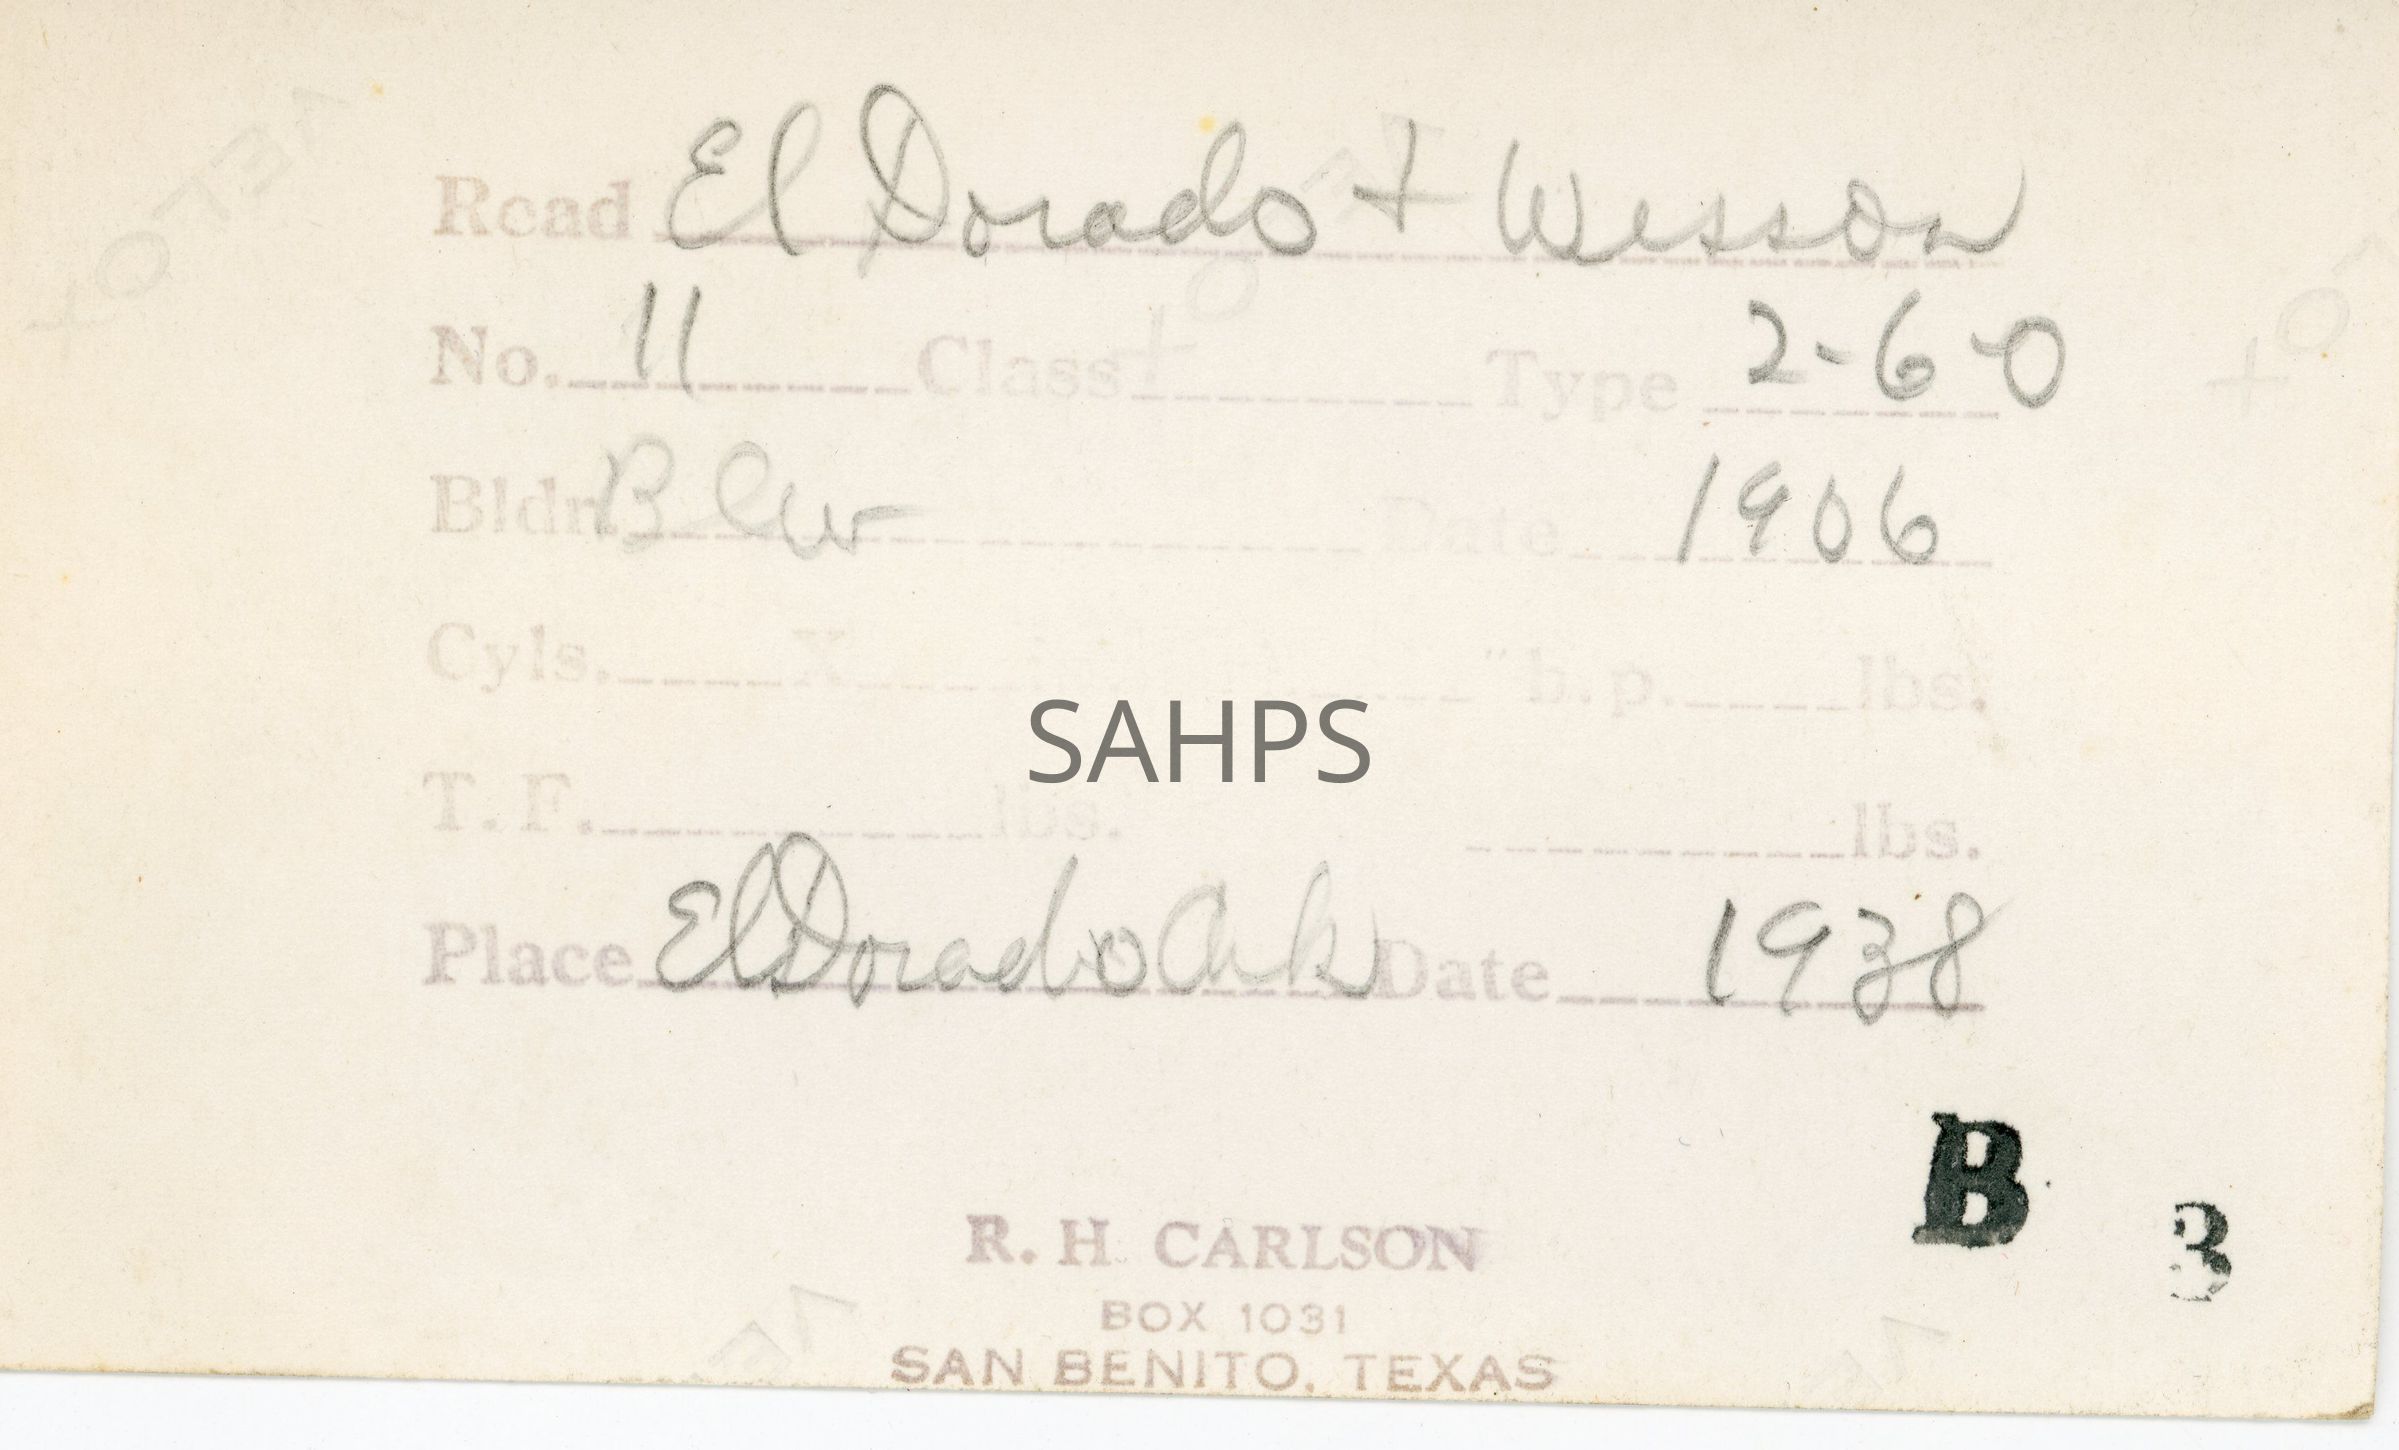 Road El Dorado + Wesson
No. 11 Class Type 2-6-0
Bldr. BLW Date 1906
Cyls. X " b.p. lbs.
SAHPS
T. F. lbs. lbs.
Place El Dorado Ark Date 1938
B
3
R. H. CARLSON
BOX 1031
SAN BENITO, TEXAS